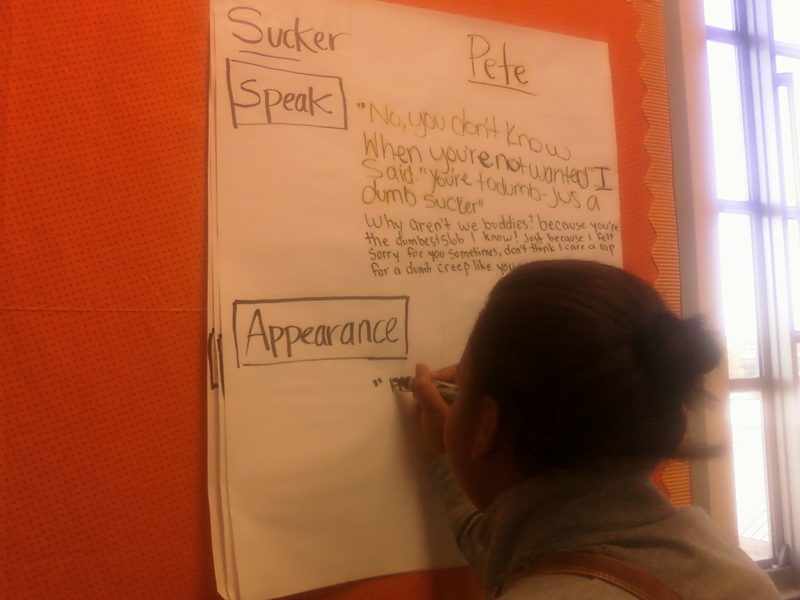 Sucker
Pete
Speak
"No, you don't know
When you're not wanted" I
Said "you're to dumb - jus a
dumb sucker"
Why aren't we buddies? because you're
the dumbest slob I know! Just because I felt
sorry for you sometimes, don't think I care a rap
for a dumb creep like you
Appearance
"